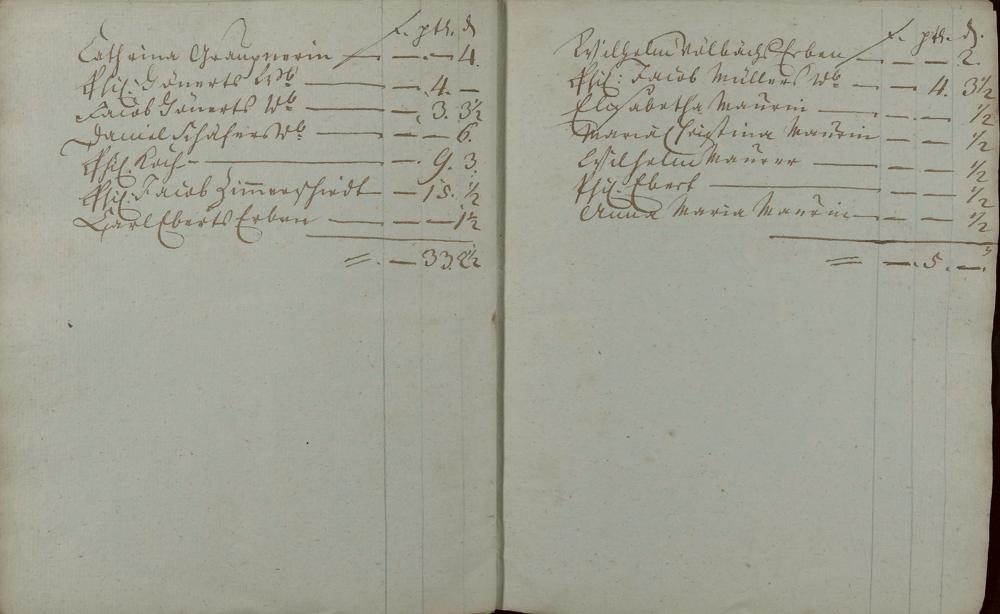 f. pth. d
Cathrina Graupnerin — — 4.
Phil: Gönerts Wb — 4. —
Jacob Gönerts Wb — 3. 3½
Daniel Schäfers Wb — — 6.
Phil. Koch — 9. 3.
Phil. Jacob Zimmerschiedt — 15. ½
Carl Eberts Erben — — 1½
= — 33. 2½
f. pth. d.
Wilhelm Völbachs Erben — — 2.
Phil: Jacob Müllers Wb — 4. 3½
Elisabetha Maurin — — ½
Maria Christina Maurin — — ½
Wilhelm Maurer — — ½
Phil. Ebert — — ½
Anna Maria Maurin — — ½
= — 5. —